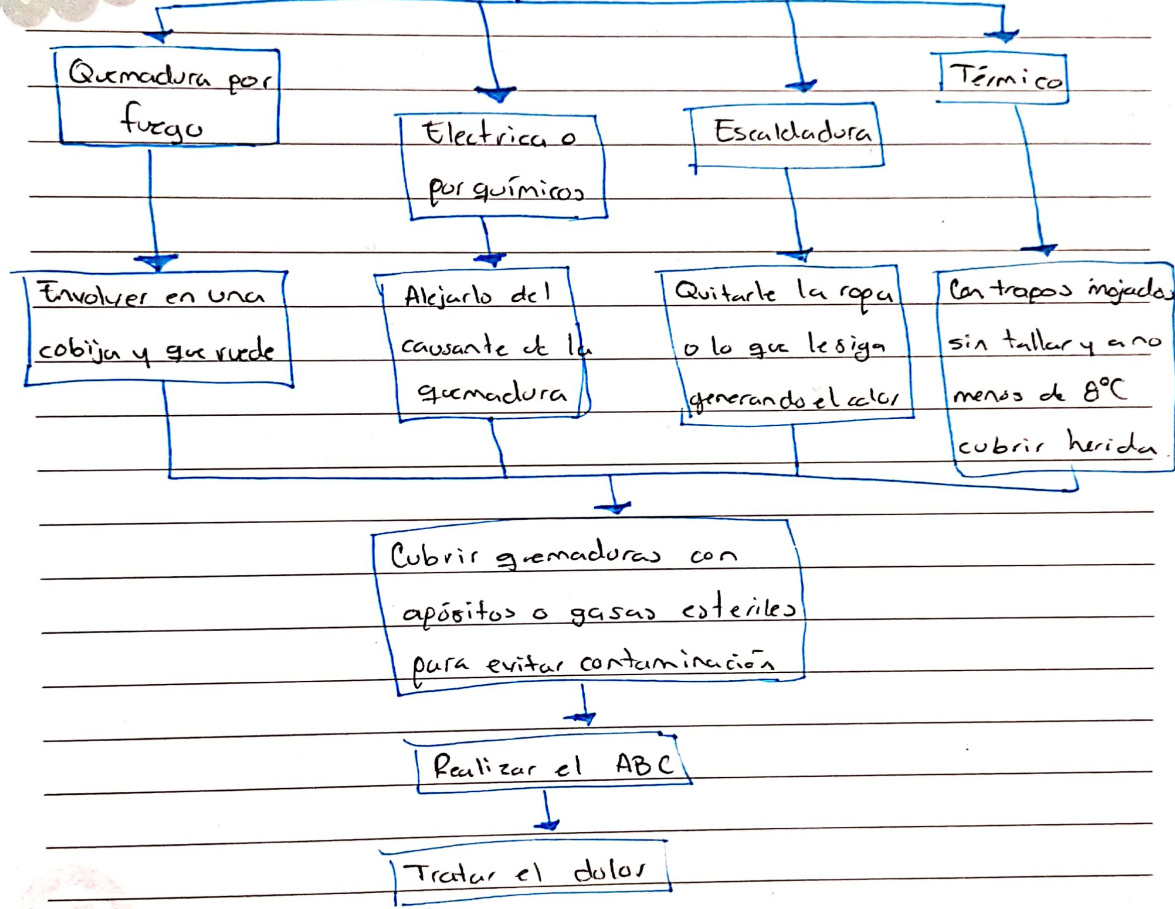 Quemadura por
fuego
Electrica o
por químicos
Escaldadura
Térmico
Envolver en una
cobija y que ruede
Alejarlo del
causante de la
quemadura
Quitarle la ropa
o lo que le siga
generando el calor
Con trapos mojados
sin tallar y a no
menos de 8°C
cubrir herida.
Cubrir quemaduras con
apósitos o gasas esteriles
para evitar contaminación
Realizar el ABC
Tratar el dolor